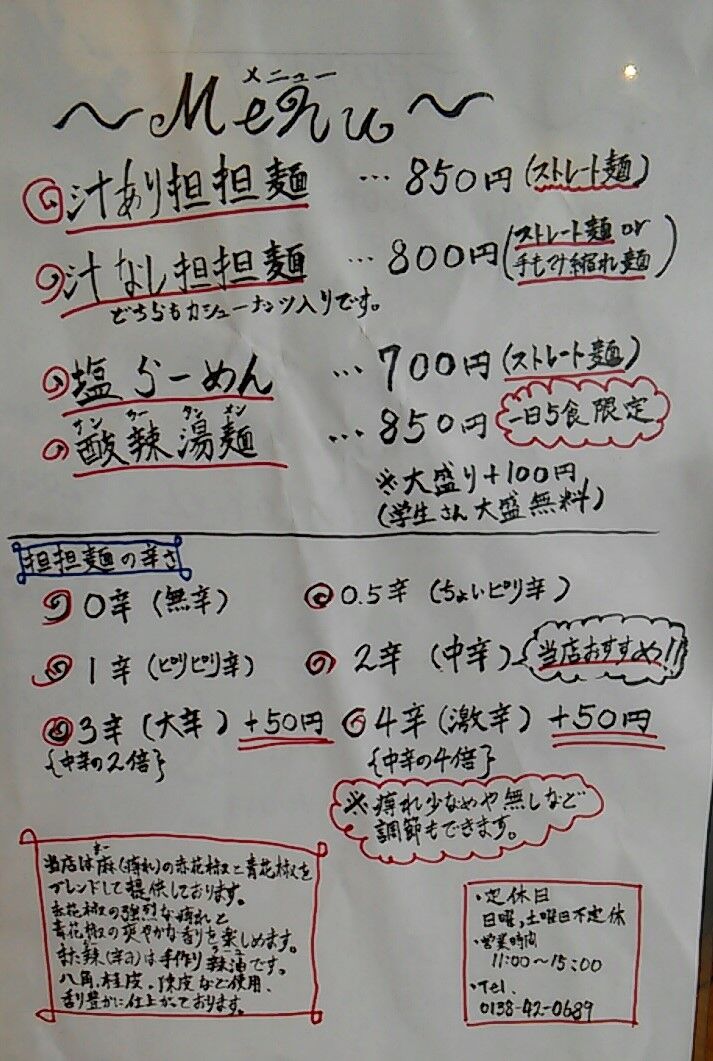 メニュー
～Menu～
汁あり担担麺 … 850円(ストレート麺)
汁なし担担麺 … 800円(ストレート麺 or 手もみ縮れ麺)
どちらもカシューナッツ入りです。
塩らーめん … 700円(ストレート麺)
サン ラー タン メン
酸辣湯麺 … 850円 一日5食限定
※大盛り+100円
(学生さん大盛無料)
担担麺の辛さ
0辛(無辛) 0.5辛(ちょいピリ辛)
1辛(ピリピリ辛) 2辛(中辛) 当店おすすめ!!
3辛(大辛) +50円 4辛(激辛) +50円
{中辛の2倍} {中辛の4倍}
※痺れ少なめや無しなど
調節もできます。
マー
当店は麻(痺れ)の赤花椒と青花椒を
ブレンドして提供しております。
赤花椒の強烈な痺れと
青花椒の爽やかな香りを楽しめます。
また辣(辛さ)は手作り辣油です。
八角、桂皮、陳皮など使用、
香り豊かに仕上がっております。
・定休日
日曜,土曜日不定休
・営業時間
11:00～15:00
・Tel.
0138-42-0689